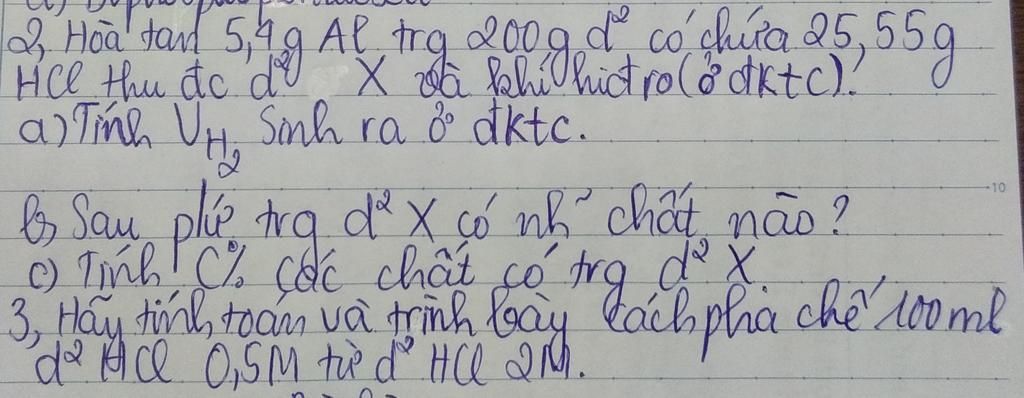 2, Hoà tan 5,4g Al trg 200g d² có chứa 25,55g
HCl thu đc d² X và khí hiđro (ở đktc).
a) Tính V H2 sinh ra ở đktc.
b, Sau pứ trg d² X có nh~ chất nào?
c) Tính C% các chất có trg d² X.
3, Hãy tính toán và trình bày cách pha chế 100ml
d² HCl 0,5M từ d² HCl 2M.